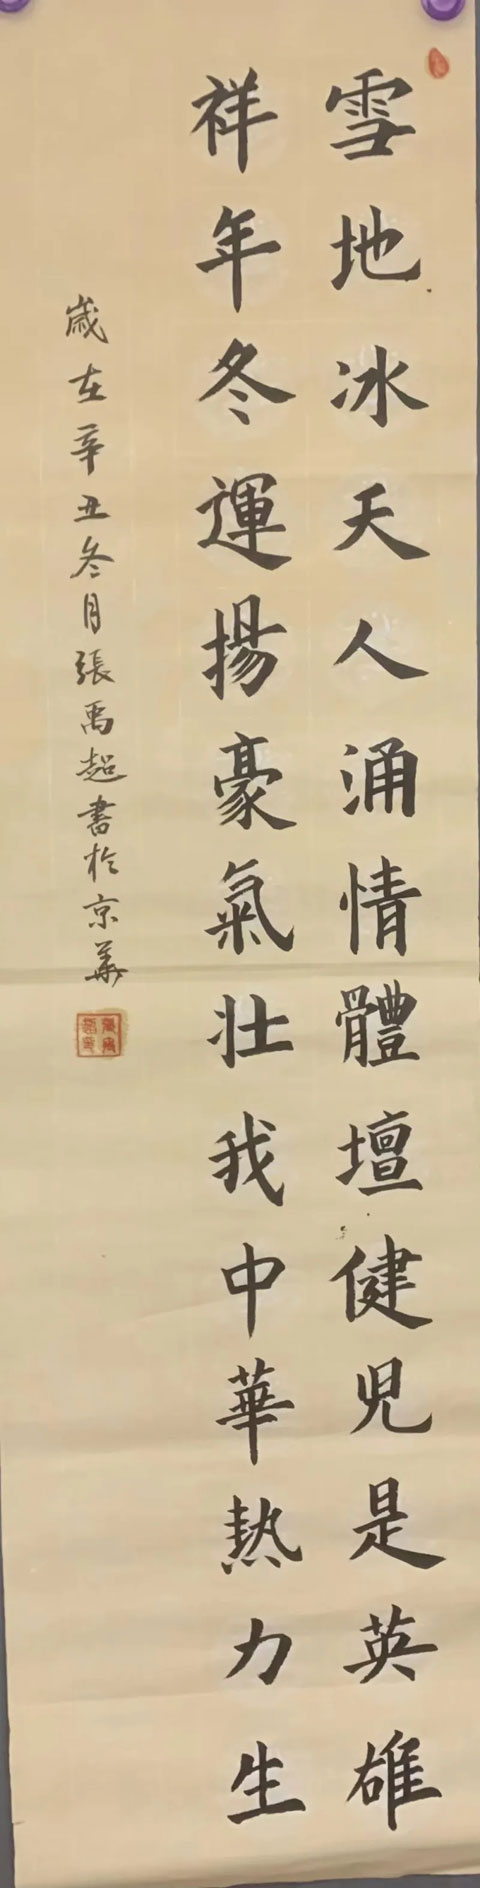 雪地冰天人涌情體壇健児是英雄
祥年冬運揚豪氣壯我中華熱力生
歲在辛丑冬月張禹超書於京華